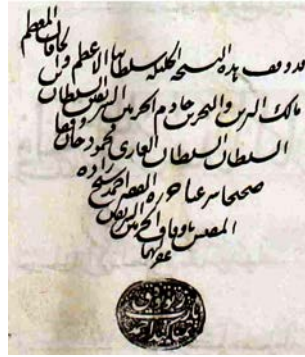 قد وقف هذه النسخة الجليلة سلطاننا الاعظم والخاقان المعظم
مالك البرين والبحرين خادم الحرمين الشريفين السلطان بن
السلطان السلطان الغازى محمود خان وقفا
صحيحا شرعيا حرره الفقير احمد شيخ زاده
المفتش باوقاف الحرمين الشريفين
غفر لهما